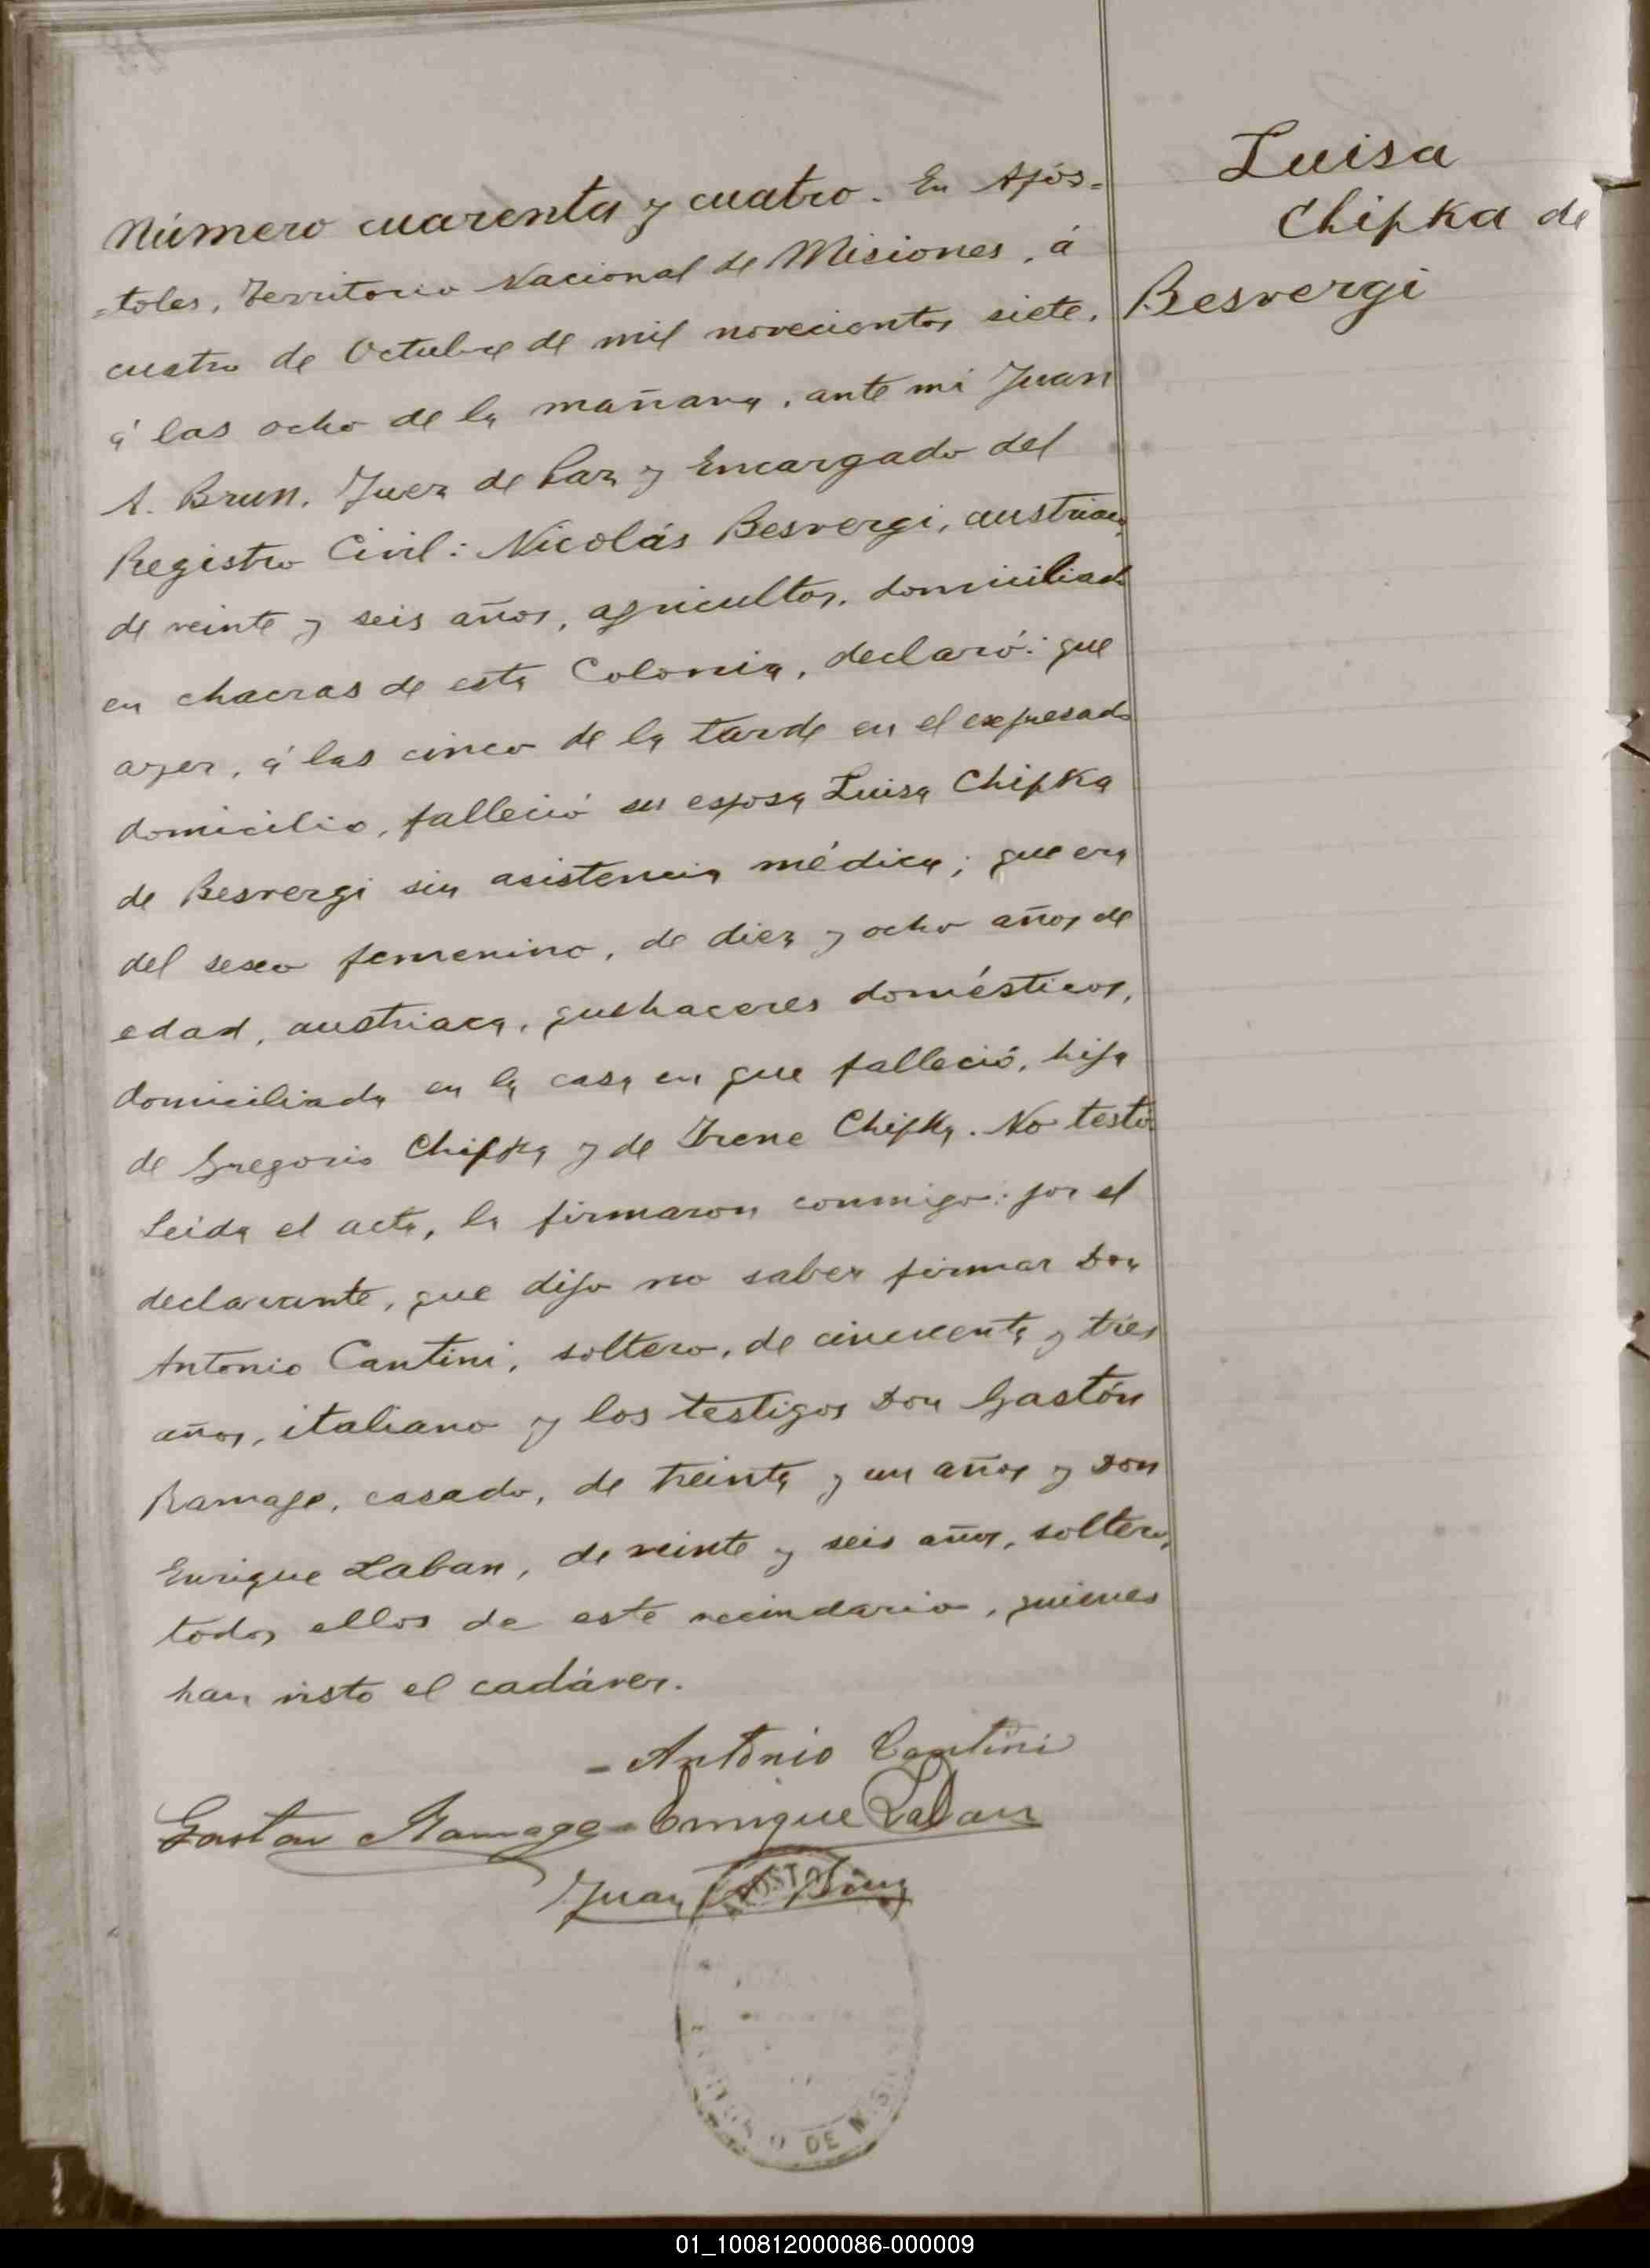 Luisa
Chipka de
Besvergi
Número cuarenta y cuatro. En Após=
=toles, Territorio Nacional de Misiones, á
cuatro de Octubre de mil novecientos siete,
á las ocho de la mañana, ante mi Juan
A. Brun, Juez de Paz y Encargado del
Registro Civil: Nicolás Besvergi, austriaco,
de veinte y seis años, agricultor, domiciliado
en chacras de esta Colonia, declaró: que
ayer, á las cinco de la tarde en el expresado
domicilio, falleció su esposa Luisa Chipka
de Besvergi sin asistencia médica; que era
del sexo femenino, de diez y ocho años de
edad, austriaca, quehaceres domésticos,
domiciliada en la casa en que falleció, hija
de Gregorio Chipka y de Irene Chipka. No testó
Leida el acta, la firmaron conmigo: por el
declarante, que dijo no saber firmar Don
Antonio Cantini, soltero, de cincuenta y tres
años, italiano y los testigos Don Gastón
Ramage, casado, de treinta y un años y Don
Enrique Laban, de veinte y seis años, soltero,
todos ellos de este vecindario, quienes
han visto el cadáver.
- Antonio Cantini
Gaston Ramage - Enrique Laban
Juan A Brun
DE
01_100812000086-000009